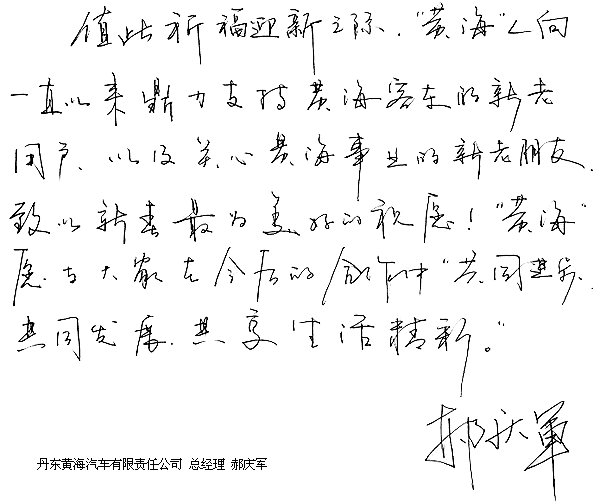 值此祈福迎新之际，"黄海"人向
一直以来鼎力支持黄海客车的新老
用户、以及关心黄海事业的新老朋友，
致以新春最为美好的祝愿！"黄海"
愿与大家在今后的合作中"共同进步、
共同发展、共享生活精彩。"
郝庆军
丹东黄海汽车有限责任公司 总经理 郝庆军